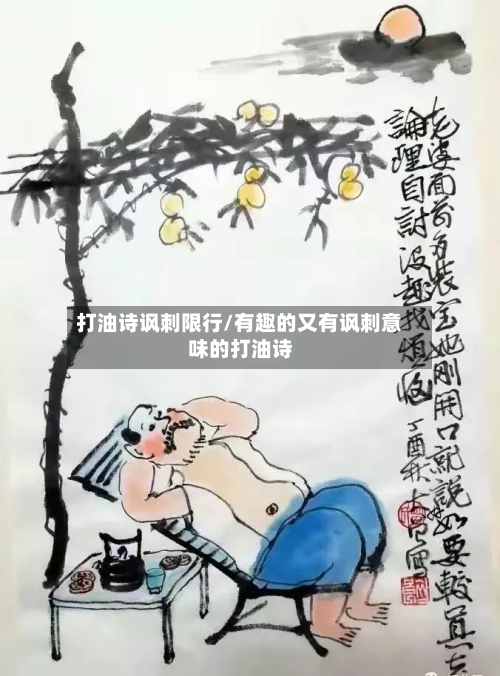 老婆面前多裝宝她刚開口就説如要較真去
論理自討没趣找煩恼 丁酉秋
打油诗讽刺限行/有趣的又有讽刺意
味的打油诗